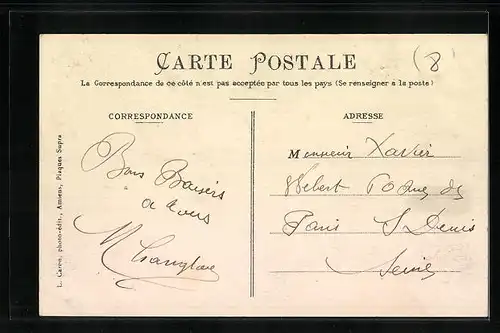 CARTE POSTALE
(8
La Correspondance de ce côté n'est pas acceptée par tous les pays (Se renseigner à la poste)
CORRESPONDANCE
Bons Baisers
a vous
ADRESSE
Monsieur Xavier
Webert 60 Rue de
Paris St Denis
Seine
L. Caron, photo-édit., Amiens, Plaques Supra